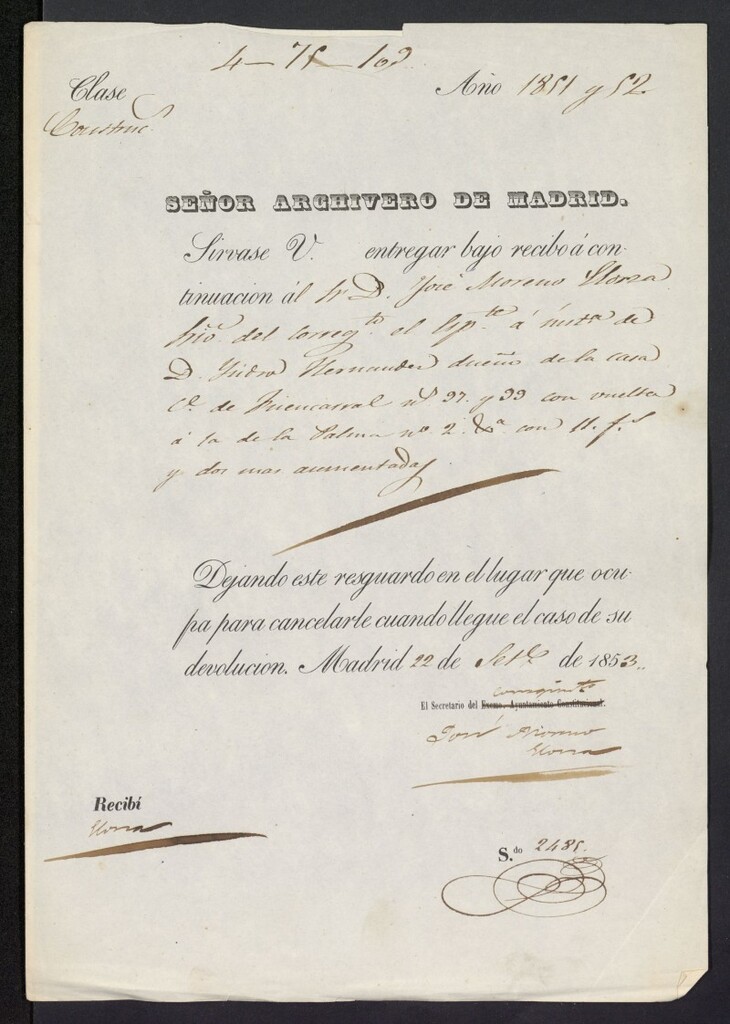 4—75—103
Clase Año 1851 y 52.
Construc
SEÑOR ARCHIVERO DE MADRID.
Sirvase V. entregar bajo recibo á con-
tinuacion ál Sr. D. José Moreno Elorza
Srio. del Correg.to el Esp.te á inst.a de
D. Ysidro Hernandez dueño de la casa
C.e de Fuencarral nº 97. y 99 con vuelta
á la de la Palma nº 2. &a con 11. f.s
y dos mas aumentadas
Dejando este resguardo en el lugar que ocu-
pa para cancelarle cuando llegue el caso de su
devolucion. Madrid 22 de Set.e de 1853..
correguim.to
El Secretario del Excmo. Ayuntamiento Constitucional.
José Moreno
Elorza
Recibí
Elorza
S.do 2485.